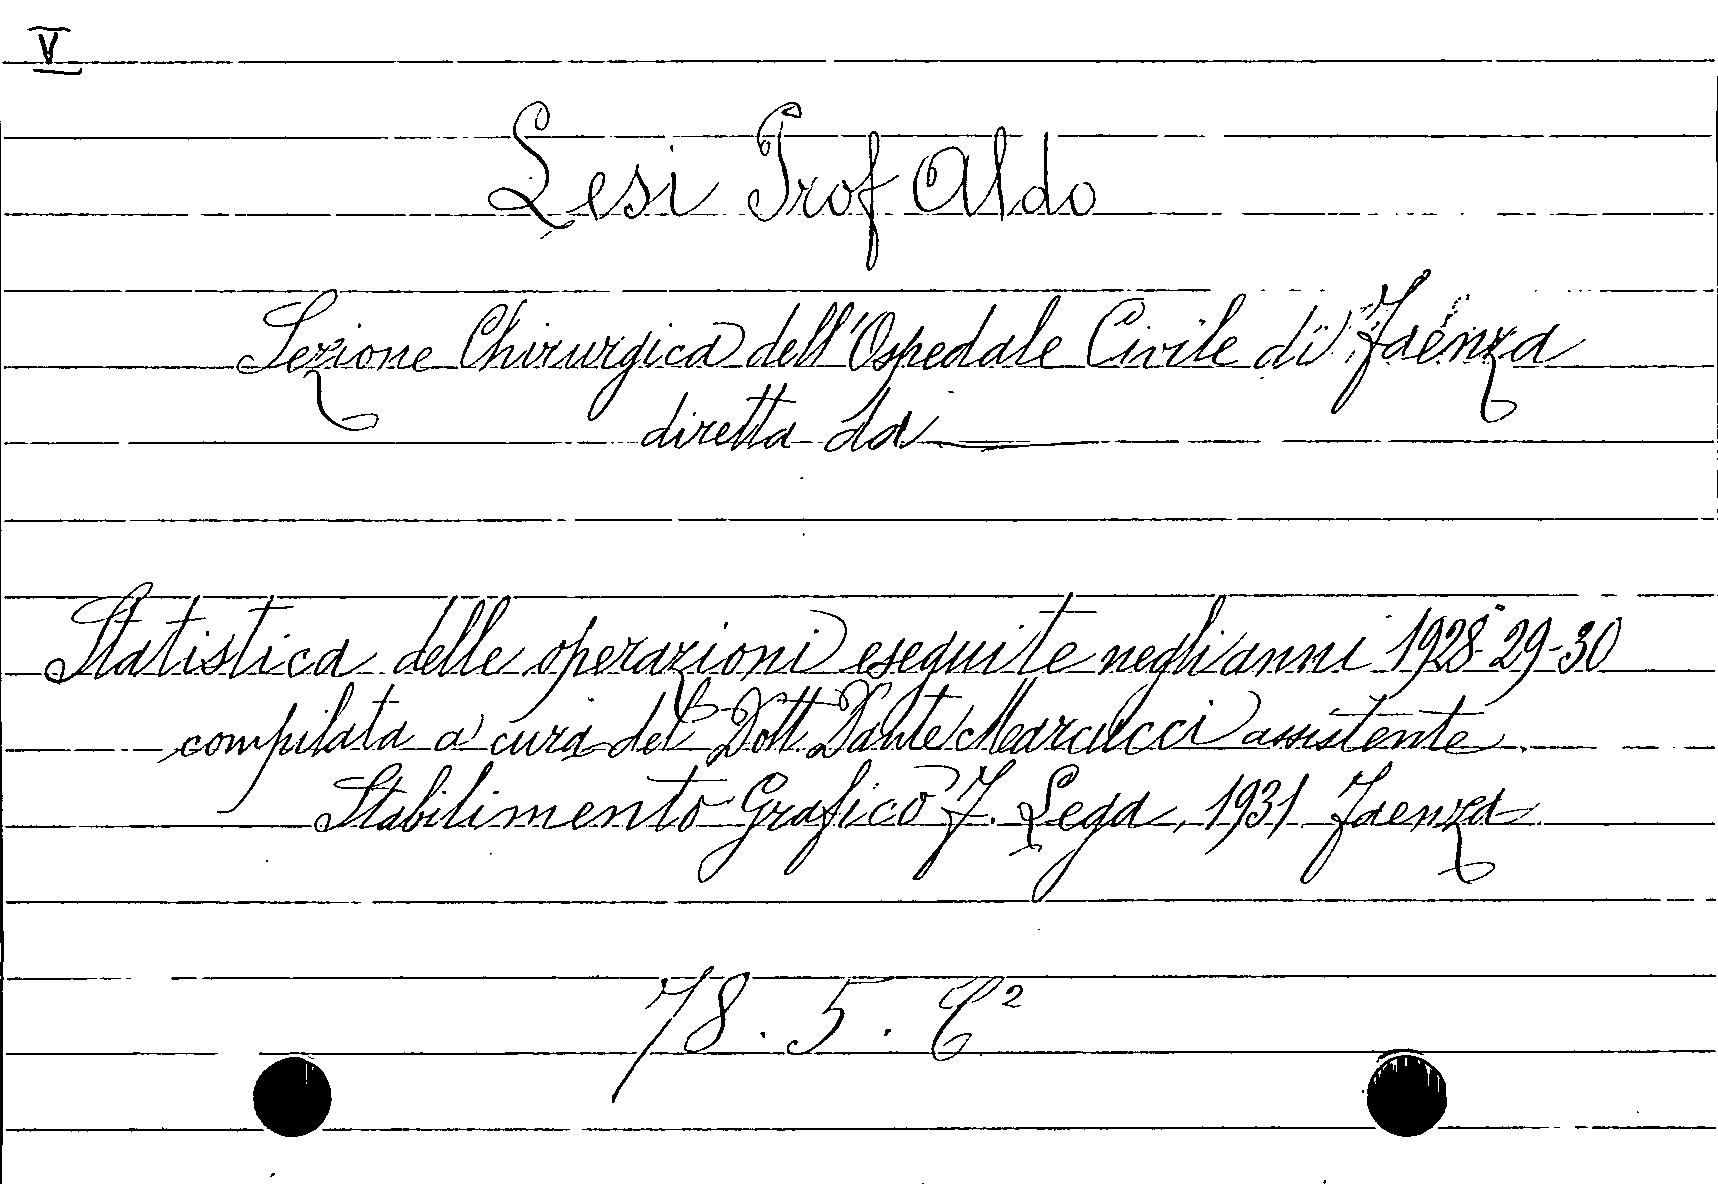 V
Lesi Prof Aldo
Sezione Chirurgica dell'Ospedale Civile di Faenza
diretta da —
Statistica delle operazioni eseguite negli anni 1928-29-30
compilata a cura del Dott. Dante Marcucci assistente.
Stabilimento Grafico F. Lega, 1931 Faenza
78. 5. C²